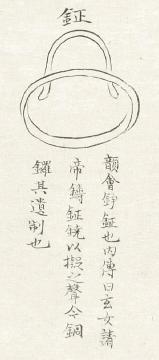 鉦
韻會鉦鐃也內傳曰玄女請
帝鑄鉦鐃以擬之聲今銅
鑼其遺制也